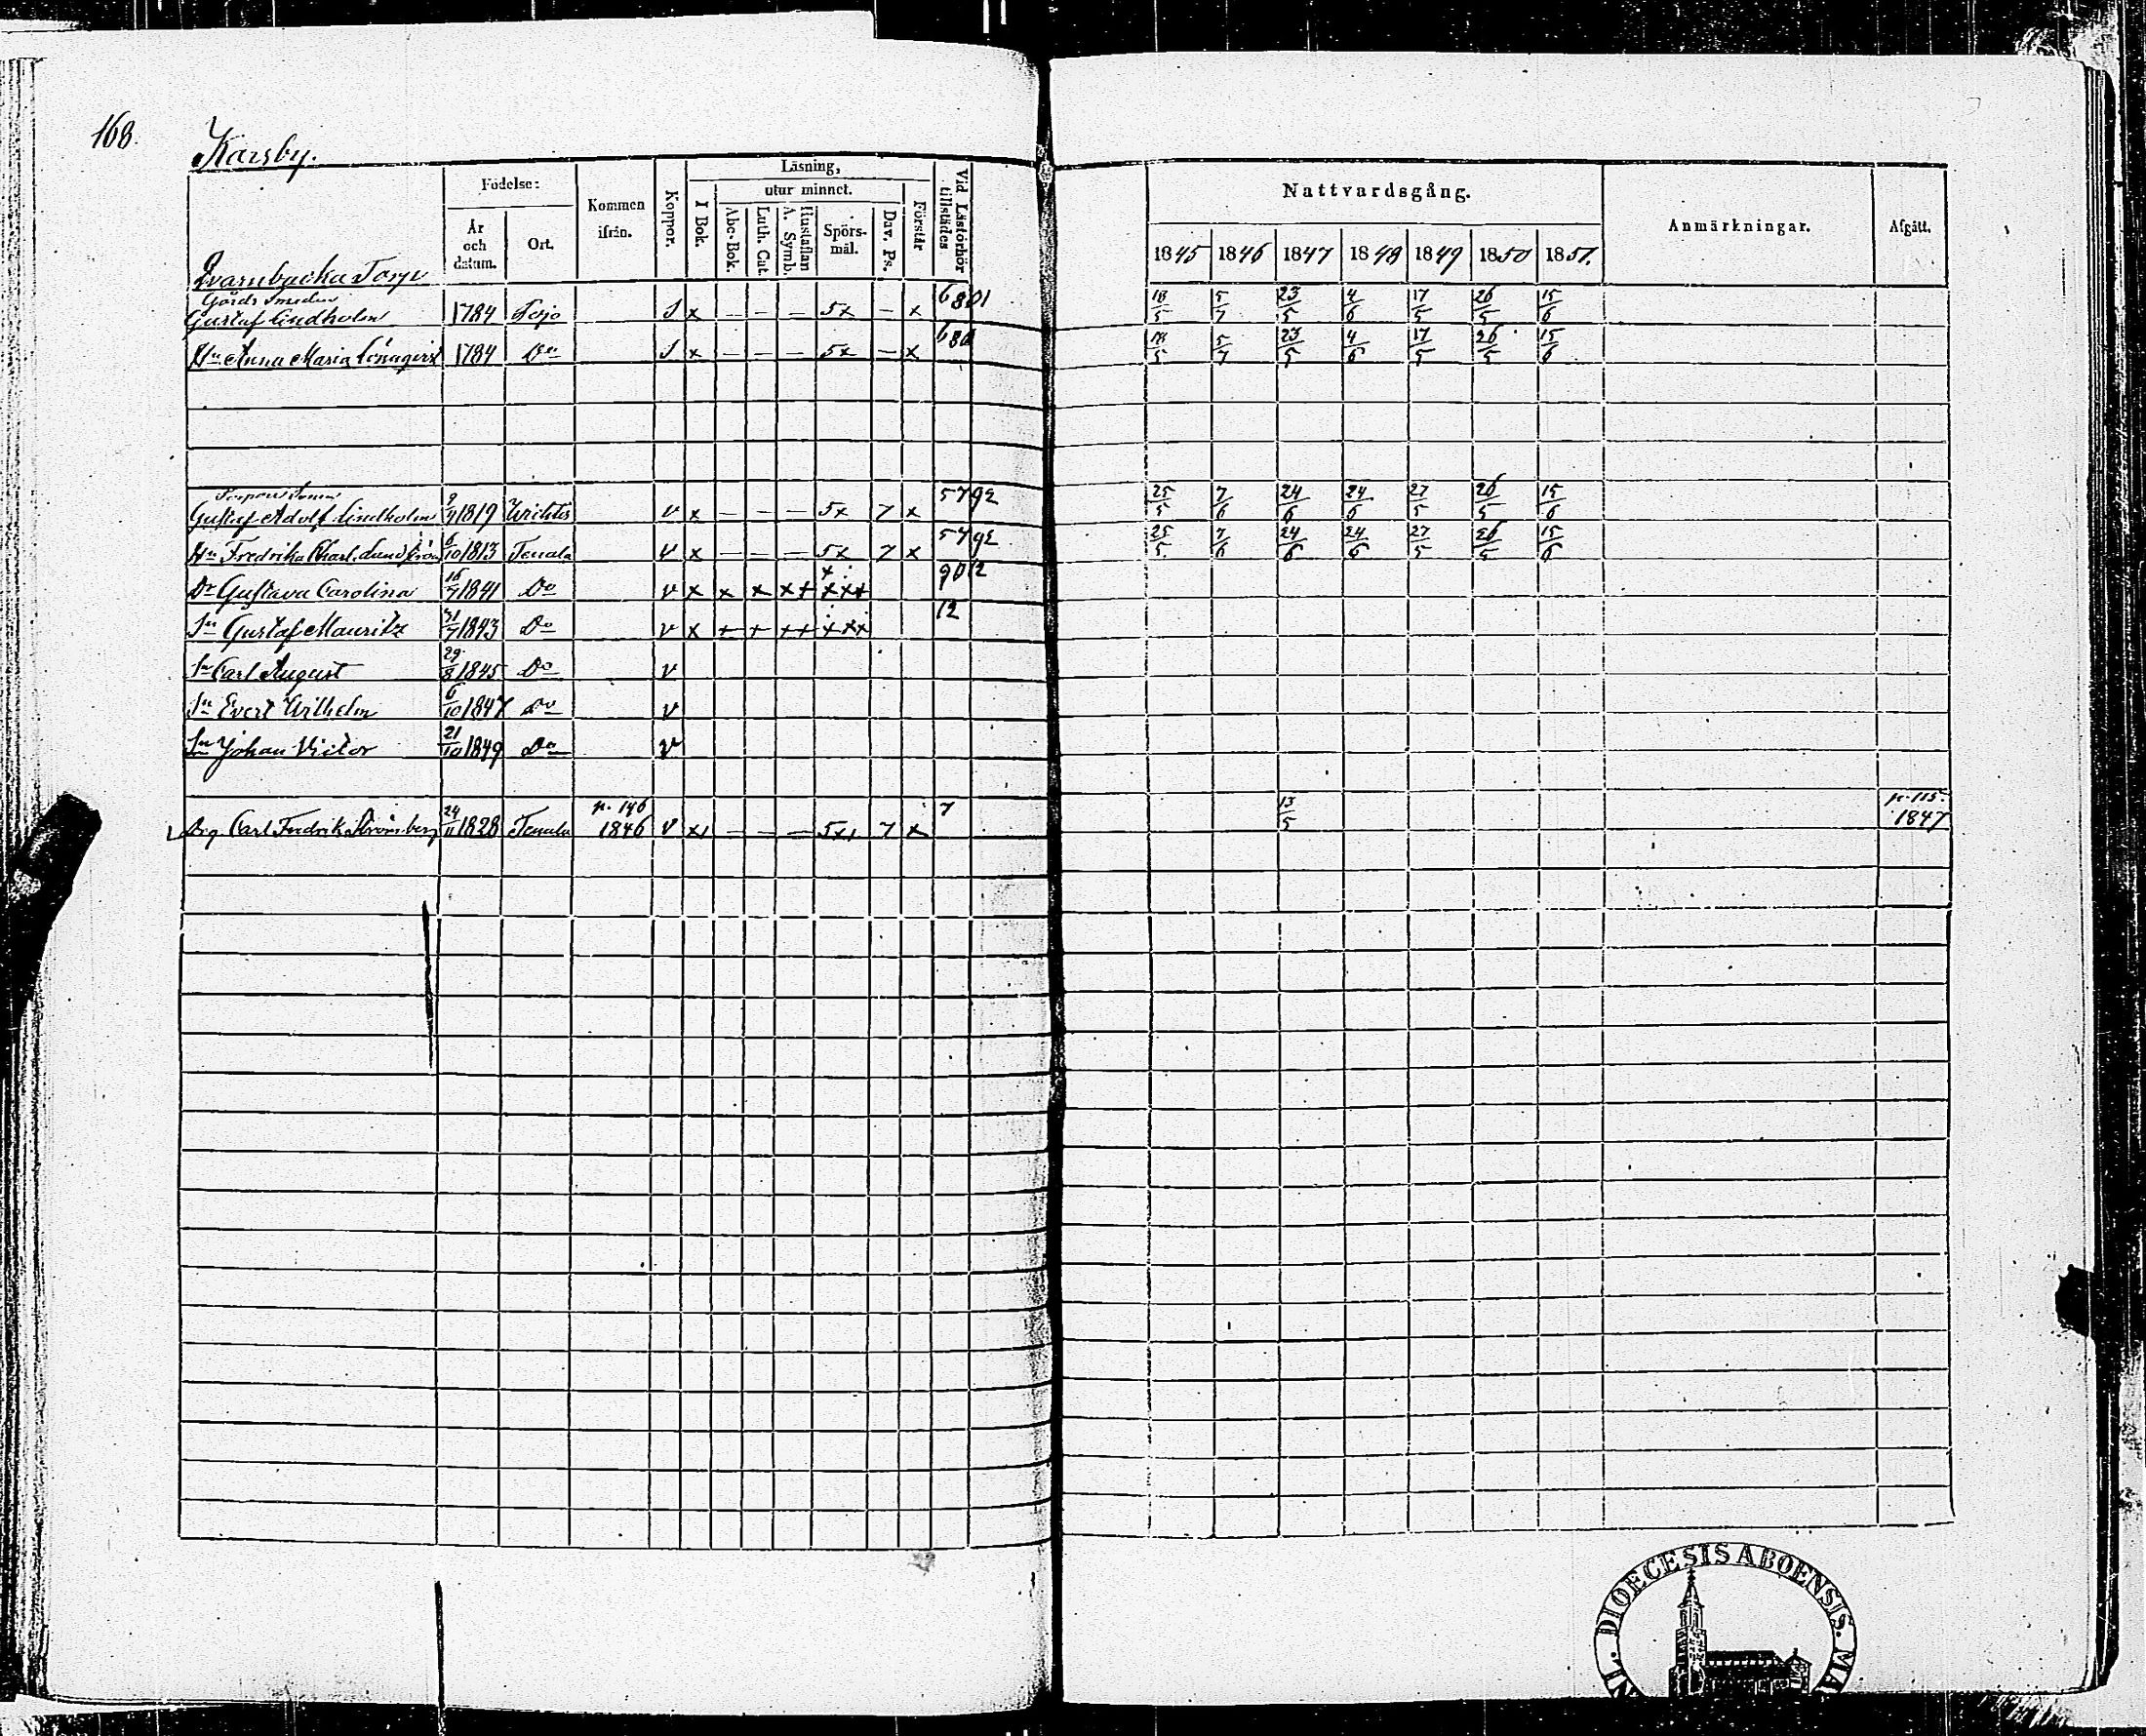 168.
Karsby.
Födelse:
År och datum.
Ort.
Kommen ifrån.
Koppor.
Läsning,
I Bok.
utur minnet.
Abc-Bok.
Luth. Cat.
Hustaflan A. Symb.
Spörs-mål.
Dav. Ps.
Förstår
Vid Läsförhör tillstädes
Nattvardsgång.
1845 1846 1847 1848 1849 1850 1851.
Anmärkningar.
Afgått.
Qvarnbacka Torp
Gårds Smeden
Gustaf Lindholm 1784 Lojo S x – – – 5x – x 6801 18/5 5/7 23/5 4/6 17/5 26/5 15/6
Hu Anna Maria Lönnqvist 1784 Do S x – – – 5x – x 680 18/5 5/7 23/5 4/6 17/5 26/5 15/6
Gustaf Adolf Lindholm 9/7 1819 Wichtis v x – – – 5x 7 x 5792 25/5 7/6 24/6 24/6 27/5 26/5 15/6
Hu Fredrika Charl. Lundström 6/10 1813 Tenala v x – – – 5x 7 x 5792 25/5 7/6 24/6 24/6 27/5 26/5 15/6
Dr Gustava Carolina 16/7 1841 Do v x x x x+ xxx 9012
Sn Gustaf Mauritz 31/7 1843 Do v x + + ++ +xx 12
Sn Carl August 29/8 1845 Do v
Sn Evert Wilhelm 6/10 1847 Do v
Sn Johan Victor 21/10 1849 Do v
Drg Carl Fredrik Strömberg 24/11 1828 Tenala p. 146 1846 v x – – – 5x 7 x 7 13/5 p. 115. 1847
DIOECESIS ABOENSIS. MA